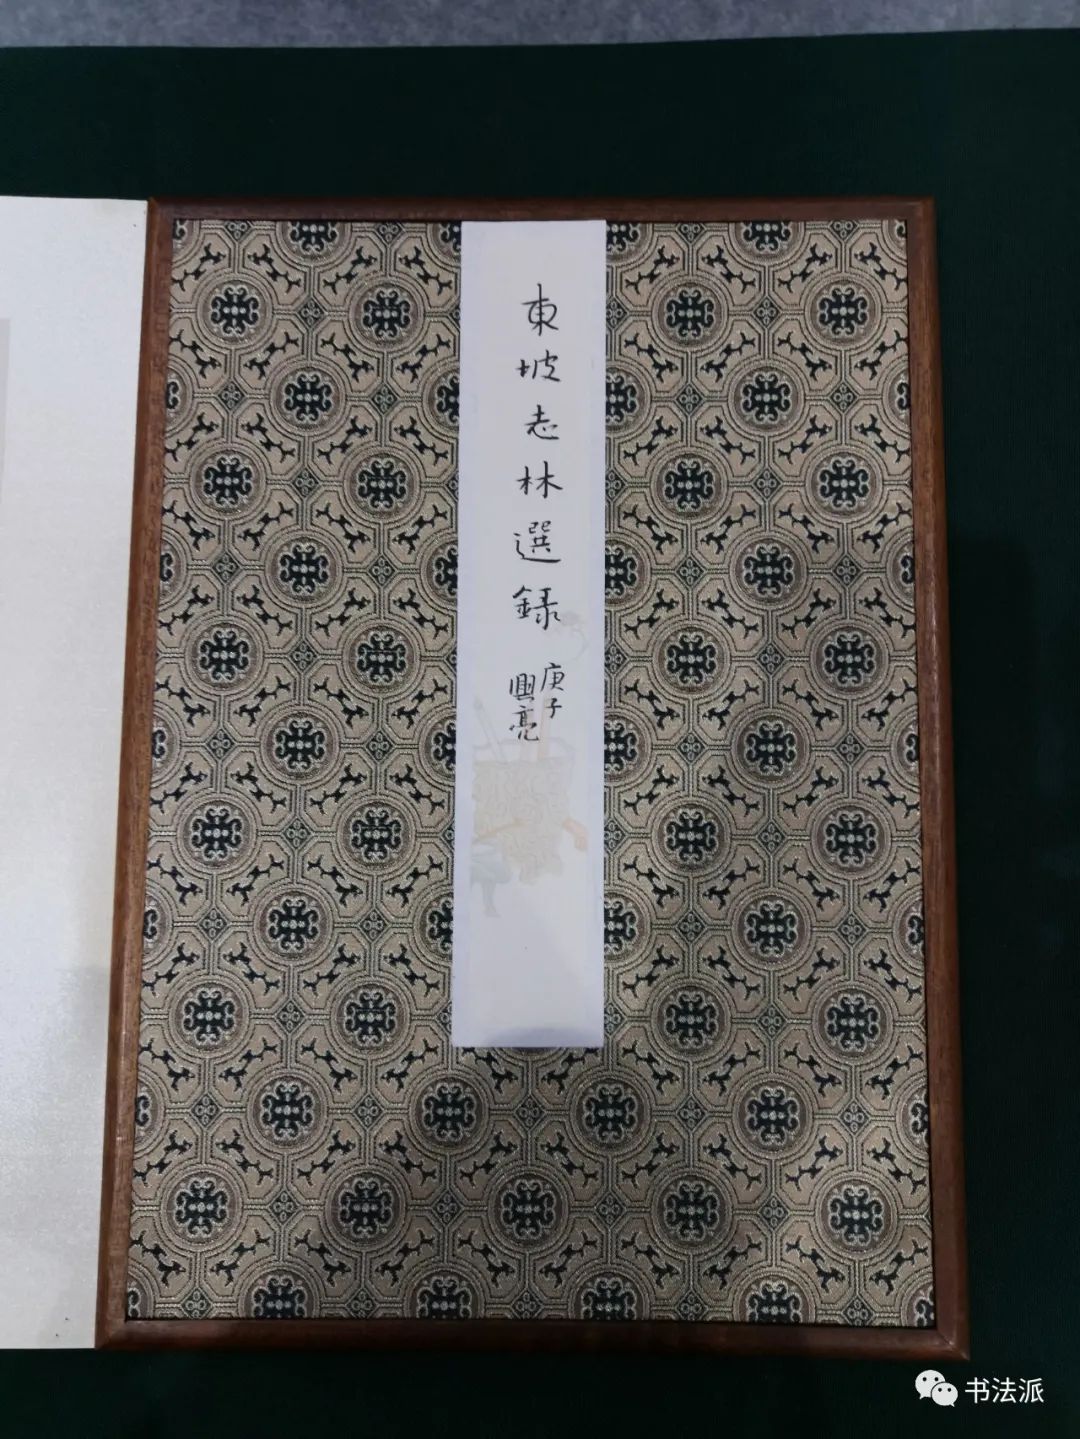 東坡志林選録
庚子
興亮
书法派